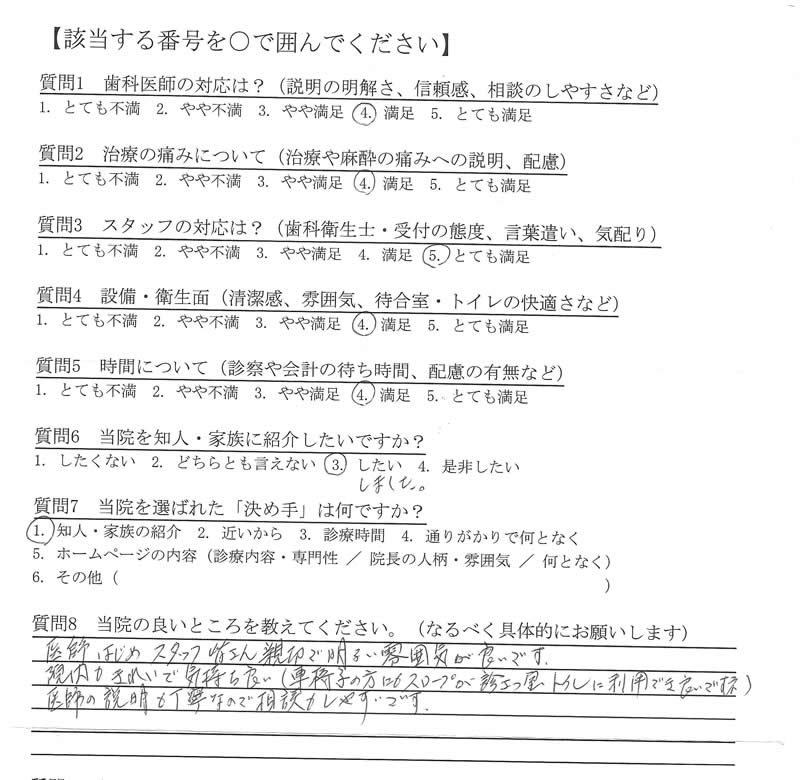 【該当する番号を○で囲んでください】
質問1 歯科医師の対応は？（説明の明解さ、信頼感、相談のしやすさなど）
1. とても不満 2. やや不満 3. やや満足 4. 満足 5. とても満足
質問2 治療の痛みについて（治療や麻酔の痛みへの説明、配慮）
1. とても不満 2. やや不満 3. やや満足 4. 満足 5. とても満足
質問3 スタッフの対応は？（歯科衛生士・受付の態度、言葉遣い、気配り）
1. とても不満 2. やや不満 3. やや満足 4. 満足 5. とても満足
質問4 設備・衛生面（清潔感、雰囲気、待合室・トイレの快適さなど）
1. とても不満 2. やや不満 3. やや満足 4. 満足 5. とても満足
質問5 時間について（診察や会計の待ち時間、配慮の有無など）
1. とても不満 2. やや不満 3. やや満足 4. 満足 5. とても満足
質問6 当院を知人・家族に紹介したいですか？
1. したくない 2. どちらとも言えない 3. したい 4. 是非したい
しました。
質問7 当院を選ばれた「決め手」は何ですか？
1. 知人・家族の紹介 2. 近いから 3. 診療時間 4. 通りがかりで何となく
5. ホームページの内容（診療内容・専門性 ／ 院長の人柄・雰囲気 ／ 何となく）
6. その他（ ）
質問8 当院の良いところを教えてください。（なるべく具体的にお願いします）
医師はじめスタッフ皆さん親切で明るい雰囲気が良いです。
院内もきれいで気持ち良い（車椅子の方にもスロープが トイレに利用でき良いです）
医師の説明も丁寧なので相談もしやすいです。